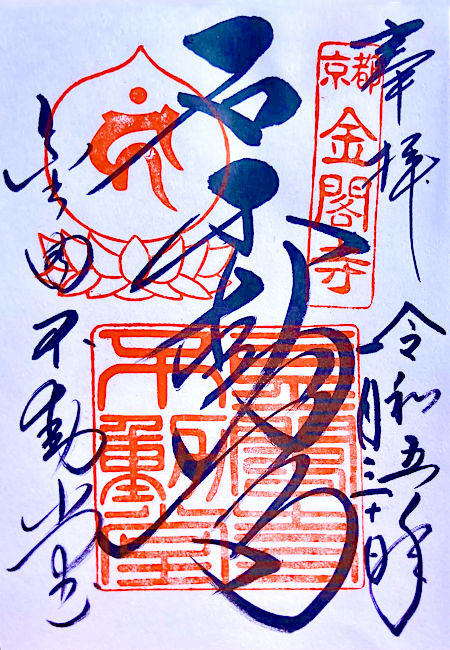 奉拝
令和五年
一月三十日
京都
金閣寺
石不動尊
金閣
不動堂